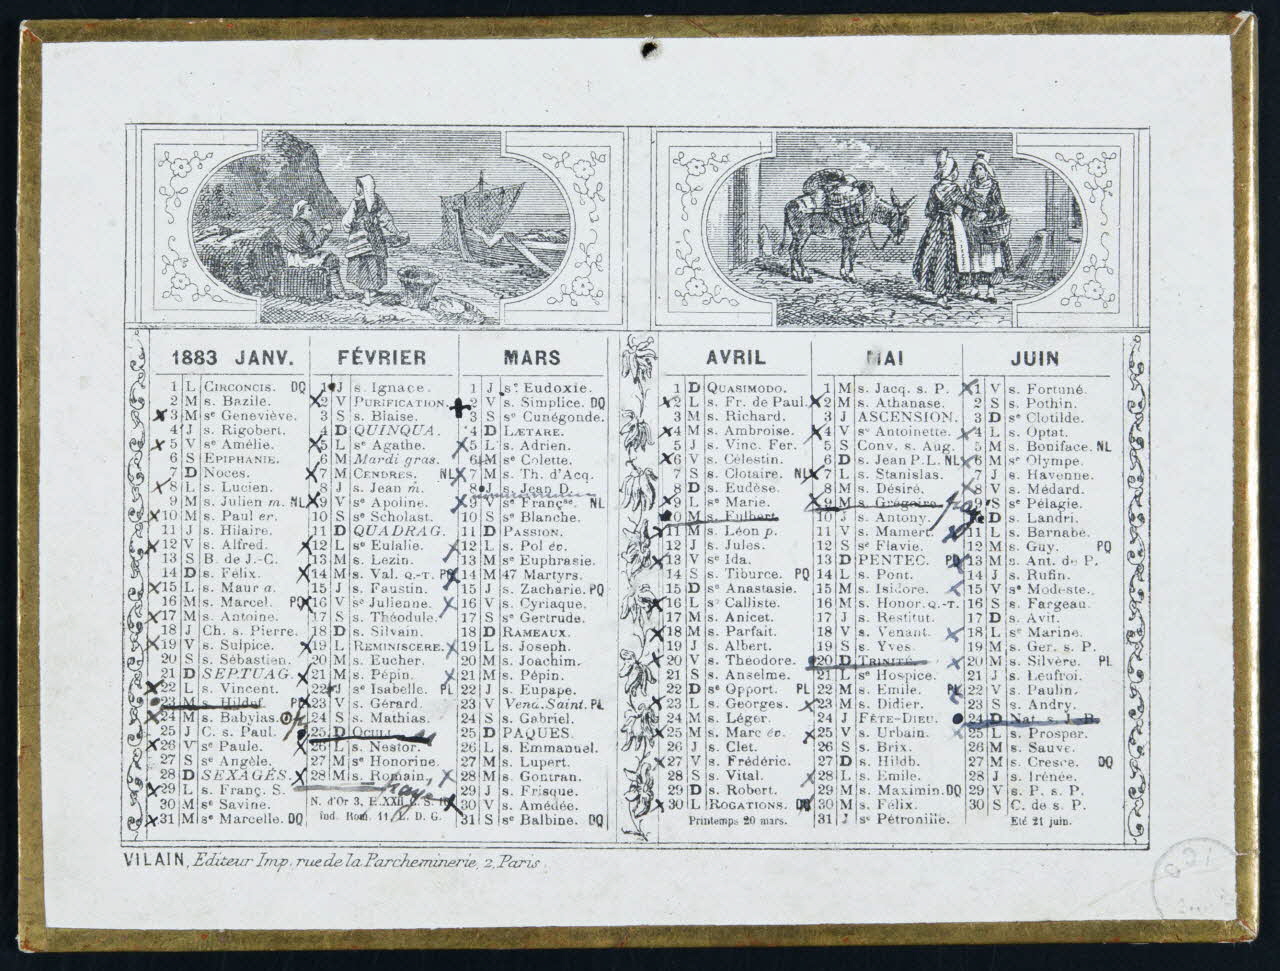 1883 JANV.
1 L CIRCONCIS. DQ
2 M s. Bazile.
3 M se Geneviève.
4 J s. Rigobert.
5 V se Amélie.
6 S EPIPHANIE.
7 D Noces.
8 L s. Lucien.
9 M s. Julien m. NL
10 M s. Paul er.
11 J s. Hilaire.
12 V s. Alfred.
13 S B. de J.-C.
14 D s. Félix.
15 L s. Maur a.
16 M s. Marcel. PQ
17 M s. Antoine.
18 J Ch. s. Pierre.
19 V s. Sulpice.
20 S s. Sébastien.
21 D SEPTUAG.
22 L s. Vincent.
23 M s. Hildef. PL
24 M s. Babylas.
25 J C. s. Paul.
26 V se Paule.
27 S se Angèle.
28 D SEXAGÉS.
29 L s. Franç. S.
30 M se Savine.
31 M se Marcelle. DQ
FÉVRIER
1 J s. Ignace.
2 V PURIFICATION.
3 S s. Blaise.
4 D QUINQUA.
5 L se Agathe.
6 M Mardi gras.
7 M CENDRES. NL
8 J s. Jean m.
9 V se Apoline.
10 S se Scholast.
11 D QUADRAG.
12 L se Eulalie.
13 M s. Lezin.
14 M s. Val. Q.-T. PQ
15 J s. Faustin.
16 V se Julienne.
17 S s. Théodule.
18 D s. Silvain.
19 L REMINISCERE.
20 M s. Eucher.
21 M s. Pépin.
22 J se Isabelle. PL
23 V s. Gérard.
24 S s. Mathias.
25 D OCULI
26 L s. Nestor.
27 M se Honorine.
28 M s. Romain.
N. d'Or 3, E. XXII C. S. 16
Ind. Rom. 11, L. D. G.
MARS
1 J se Eudoxie.
2 V s. Simplice. DQ
3 S se Cunégonde.
4 D LÆTARE.
5 L s. Adrien.
6 M se Colette.
7 M s. Th. d'Acq.
8 J s. Jean D.
9 V se Françse. NL
10 S se Blanche.
11 D PASSION.
12 L s. Pol év.
13 M se Euphrasie.
14 M 47 Martyrs.
15 J s. Zacharie. PQ
16 V s. Cyriaque.
17 S se Gertrude.
18 D RAMEAUX.
19 L s. Joseph.
20 M s. Joachim.
21 M s. Pépin.
22 J s. Eupape.
23 V Vend. Saint. PL
24 S s. Gabriel.
25 D PAQUES.
26 L s. Emmanuel.
27 M s. Lupert.
28 M s. Gontran.
29 J s. Frisque.
30 V s. Amédée.
31 S se Balbine. DQ
AVRIL
1 D QUASIMODO.
2 L s. Fr. de Paul.
3 M s. Richard.
4 M s. Ambroise.
5 J s. Vinc. Fer.
6 V s. Célestin.
7 S s. Clotaire. NL
8 D s. Eudèse.
9 L se Marie.
10 M s. Fulbert
11 M s. Léon p.
12 J s. Jules.
13 V se Ida.
14 S s. Tiburce. PQ
15 D se Anastasie.
16 L se Calliste.
17 M s. Anicet.
18 M s. Parfait.
19 J s. Albert.
20 V s. Théodore.
21 S s. Anselme.
22 D se Opport. PL
23 L s. Georges.
24 M s. Léger.
25 M s. Marc év.
26 J s. Clet.
27 V s. Frédéric.
28 S s. Vital.
29 D s. Robert.
30 L ROGATIONS. DQ
Printemps 20 mars.
MAI
1 M s. Jacq. s. P.
2 M s. Athanase.
3 J ASCENSION.
4 V se Antoinette.
5 S Conv. s. Aug.
6 D s. Jean P. L. NL
7 L s. Stanislas.
8 M s. Désiré.
9 M s. Grégoire
10 J s. Antony.
11 V s. Mamert.
12 S se Flavie.
13 D PENTEC. PQ
14 L s. Pont.
15 M s. Isidore.
16 M s. Honor. Q.-T.
17 J s. Restitut.
18 V s. Venant.
19 S s. Yves.
20 D TRINITÉ
21 L se Hospice.
22 M s. Emile. PL
23 M s. Didier.
24 J FÊTE-DIEU.
25 V s. Urbain.
26 S s. Brix.
27 D s. Hildb.
28 L s. Emile.
29 M s. Maximin. DQ
30 M s. Félix.
31 J se Pétronille.
JUIN
1 V s. Fortuné.
2 S s. Pothin.
3 D se Clotilde.
4 L s. Optat.
5 M s. Boniface. NL
6 M se Olympe.
7 J s. Havenne.
8 V s. Médard.
9 S se Pélagie.
10 D s. Landri.
11 L s. Barnabe.
12 M s. Guy. PQ
13 M s. Ant. de P.
14 J s. Rufin.
15 V se Modeste.
16 S s. Fargeau.
17 D s. Avit.
18 L se Marine.
19 M s. Ger. s. P.
20 M s. Silvère. PL
21 J s. Leufroi.
22 V s. Paulin.
23 S s. Andry.
24 D Nat. s. J. B.
25 L s. Prosper.
26 M s. Sauve.
27 M s. Cresce. DQ
28 J s. Irénée.
29 V s. P. s. P.
30 S C. de s. P.
Eté 21 juin.
VILAIN, Editeur Imp. rue de la Parcheminerie, 2, Paris.